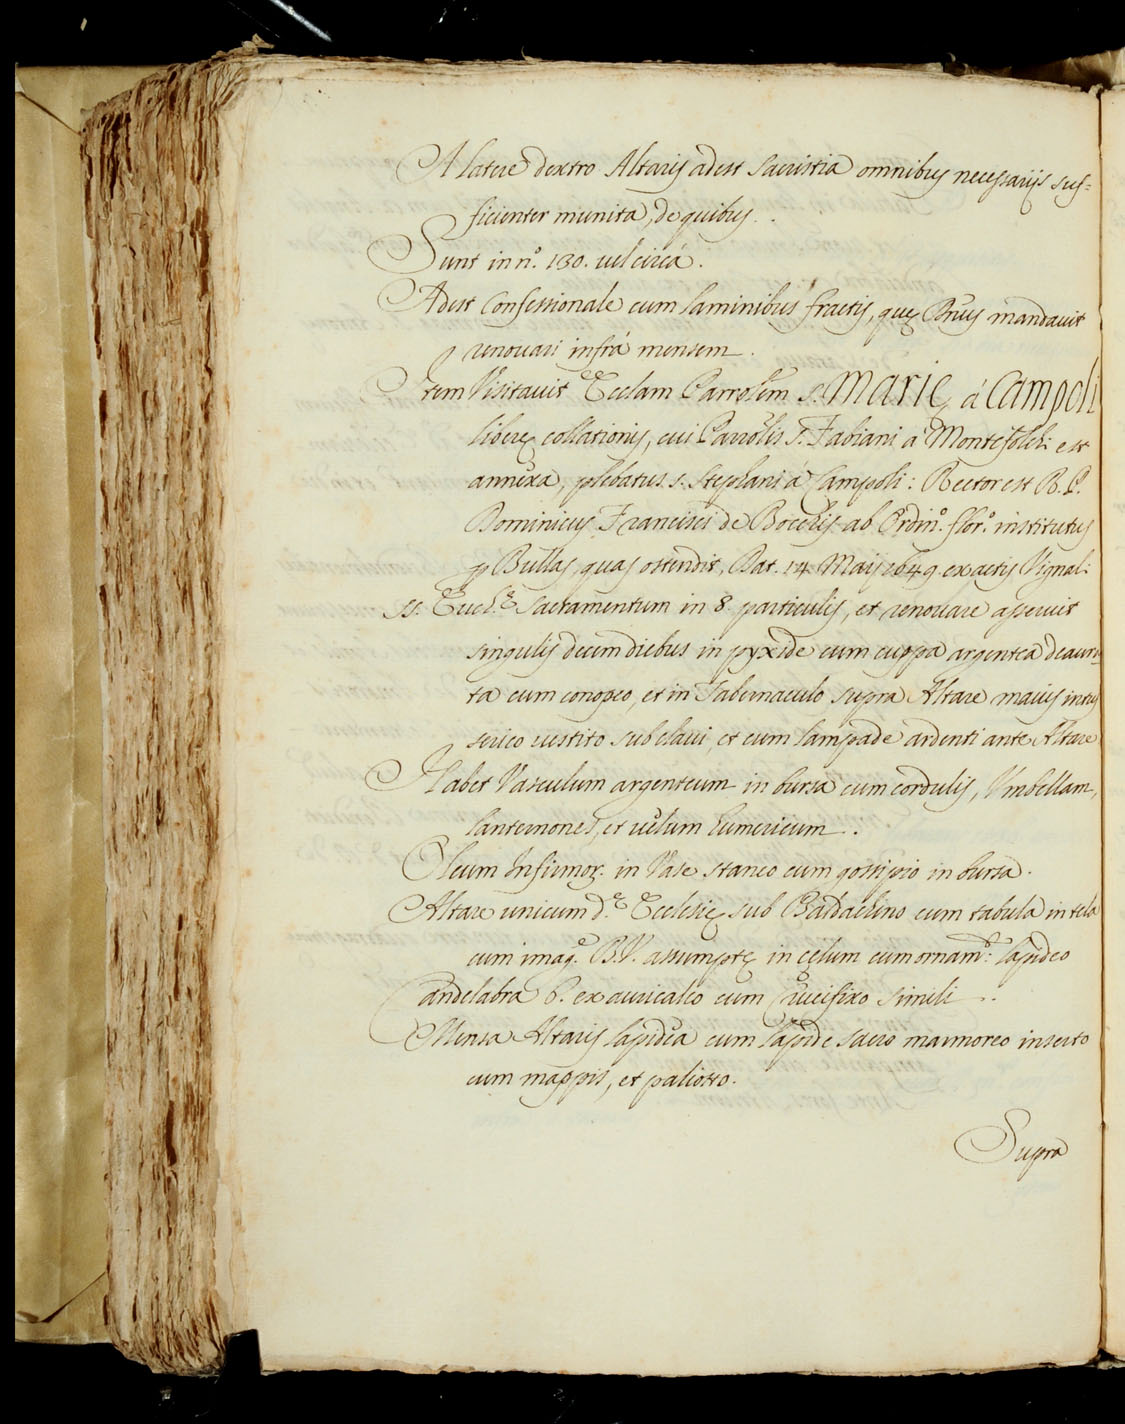 A latere dextro Altaris adest sacristia omnibus necessarijs suf=
ficienter munita, de quibus.
Sunt in nº. 130. vel circà.
Adest Confessionale cum laminibus fractis, quę mandavit
renovari infrà mensem.
Item Visitavit Ecclam Parrolem s. Marię à Campoli
liberę collationis, cui Parrolis S. Fabiani à Montefolchi est
annexa, plebatus s. Stephani à Campoli: Rector est R. P.
Dominicus Francisci de ab Ordinº. florº. institutus
p Bullas, quas ostendit, Dat. 14 Maij 1649 ex actis Vignal:
SS. Euchę Sacramentum in 8. particulis, et renovare asseruit
singulis decem diebus in pyxide cum cuppa argentea deaura
ta cum conopeo, et in Tabernaculo supra Altare maius intus
serico vestito sub clavi, et cum lampade ardenti ante Altare
Habet Vasculum argenteum in bursa cum cordulis, Vmbellam,
lanternones, et velum humericum.
Oleum Infirmor. in Vase staneo cum gossipio in bursa.
Altare unicum dę Ecclesię sub Baldachino cum tabula in tela
cum imagᵉ. B.V. assumptę in cęlum cum ornamᵗᵒ: lapideo
Candelabra 6. ex auricalco cum Crucifixo simili.
Mensa Altaris lapidea cum lapide sacro marmoreo inserto
cum mappis, et paliotto.
Supra